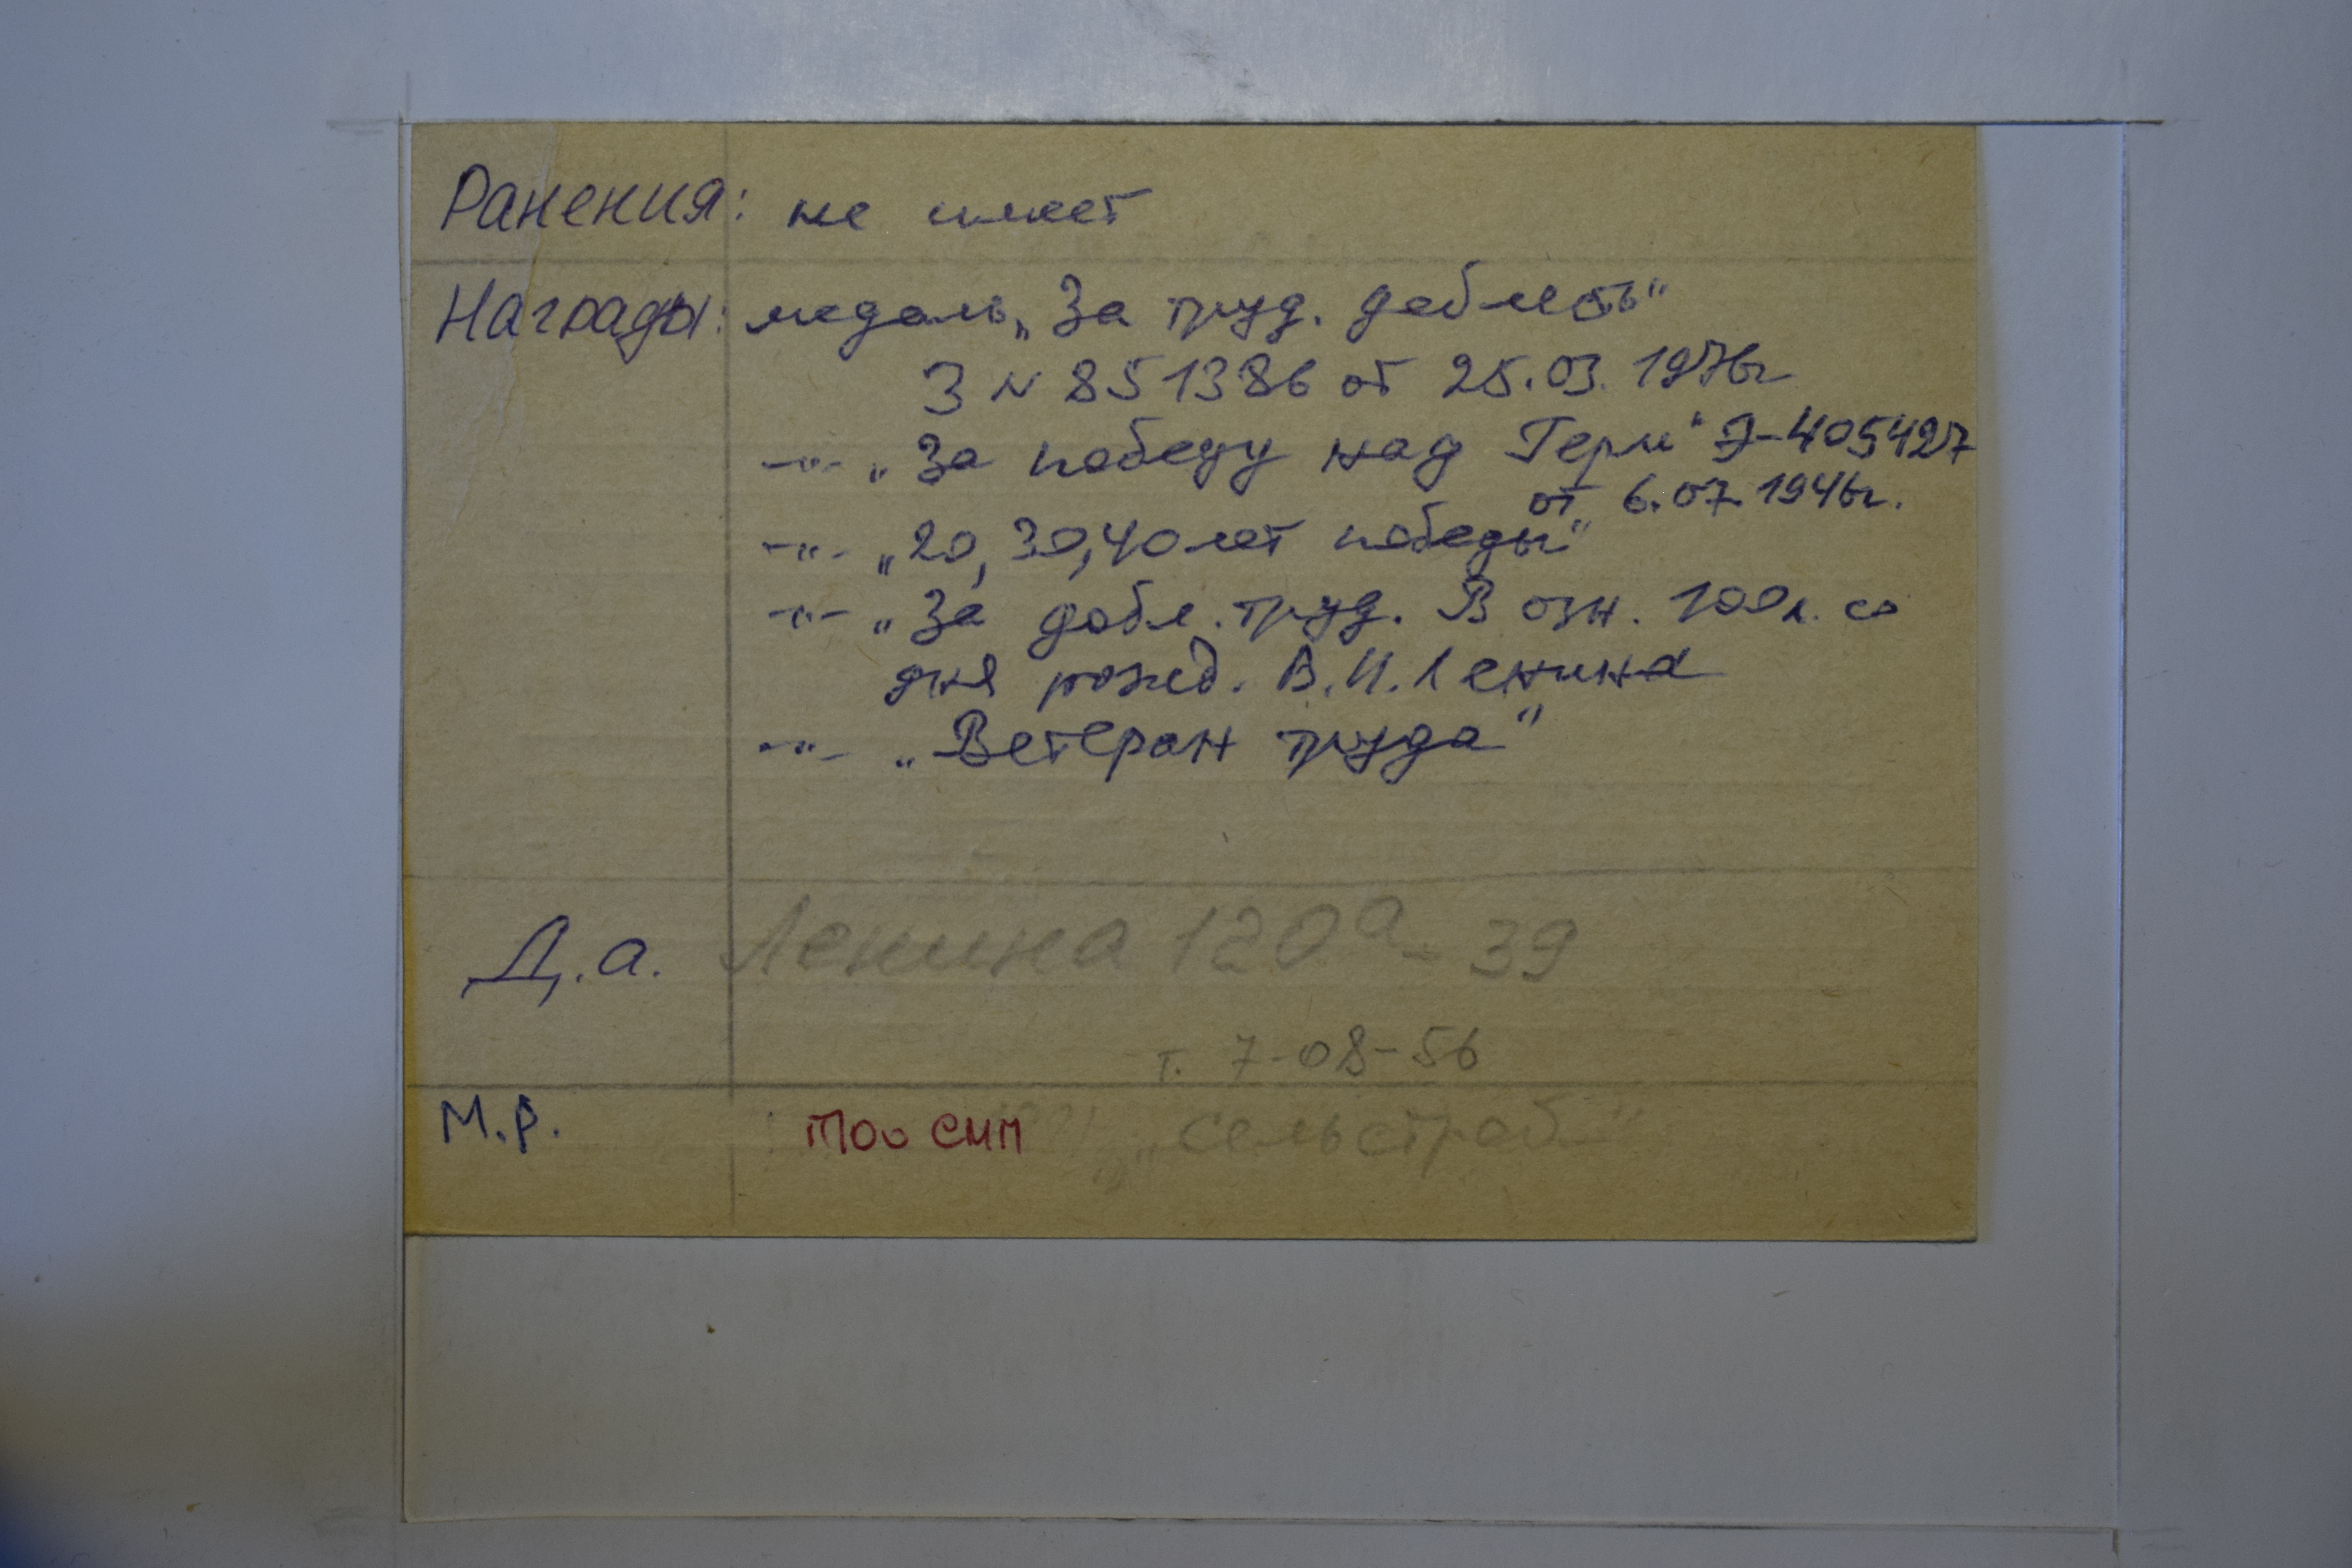 Ранения: не имеет
Награды: медаль „За труд. доблесть“
З N 851386 от 25.03.1976г
-"- „За победу над Герм“ Э-405427
от 6.07.1946г.
-"- „20, 30, 40 лет победы“
-"- „За добл. труд. В озн. 100л. со
дня рожд. В.И. Ленина
-"- „Ветеран труда“
Д.а. Ленина 120а - 39
т. 7-08-56
М.Р. ТОО СМП „Сельстрой“